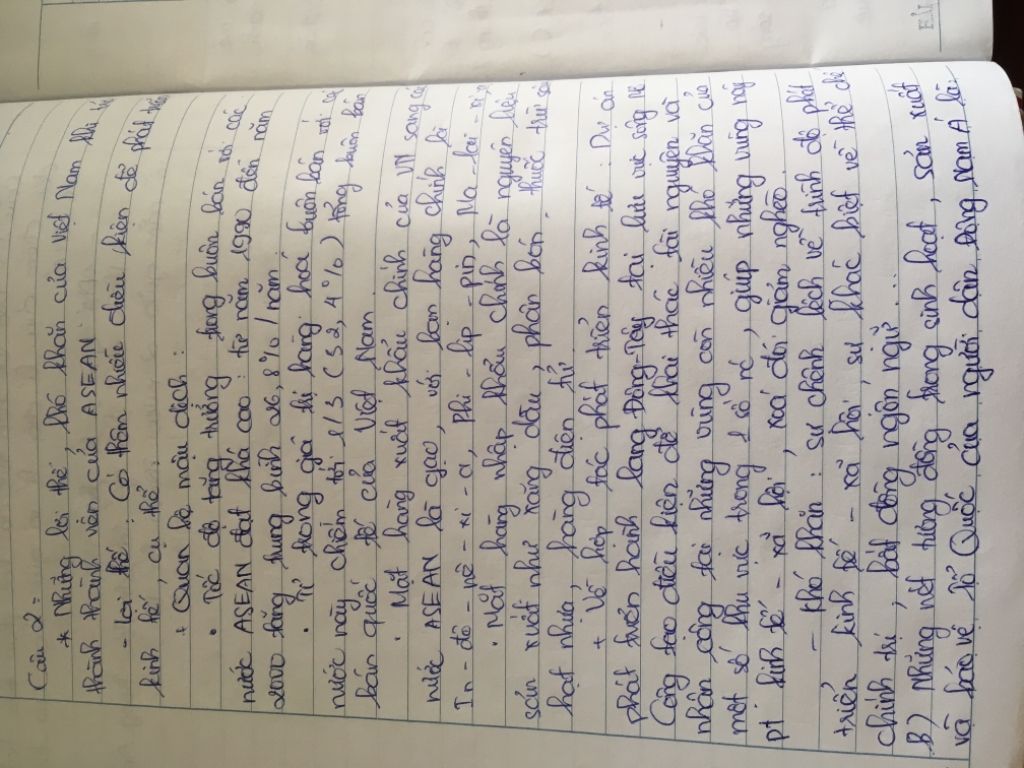 Câu 2:
* Những lợi thế, khó khăn của việt Nam khi
thành thành viên của ASEAN
- lợi thế: Có thêm nhiều điều kiện để phát
kinh tế, cụ thể.
+ Quan hệ mậu dịch:
• Tốc độ tăng trưởng trong buôn bán với các
nước ASEAN đạt khá cao: từ năm 1990 đến năm
2000 tăng trung bình 26,8%/năm
• Tỉ trọng giá trị hàng hoá buôn bán với
nước này chiếm tới 1/3 (32,4%) tổng buôn bán
bán quốc tế của Việt Nam.
• Mặt hàng xuất khẩu chính của VN sang
nước ASEAN là gạo, với bạn hàng chính là
In-đô-nê-xi-a, Phi-lip-pin, Ma-lai-xi-a
• Mặt hàng nhập khẩu chính là nguyên liệu
sản xuất như xăng dầu, phân bón, thuốc trừ
hạt nhựa, hàng điện tử
+ Về hợp tác phát triển kinh tế: Dự án
phát triển hành lang Đông-Tây tại lưu vực sông
Công tạo điều kiện để khai thác tài nguyên và
nhân công tại những vùng còn nhiều khó khăn của
một số khu vực trong 1 số nc, giúp những vùng này
pt kinh tế - xã hội, xoá đói giảm nghèo.
- khó khăn: sự chênh lệch về trình độ phát
triển kinh tế - xã hội, sự khác biệt về thể chế
chính trị, bất đồng ngôn ngữ...
B) Những nét tương đồng trong sinh hoạt, sản xuất
và bảo vệ Tổ Quốc của người dân Đông Nam Á là: